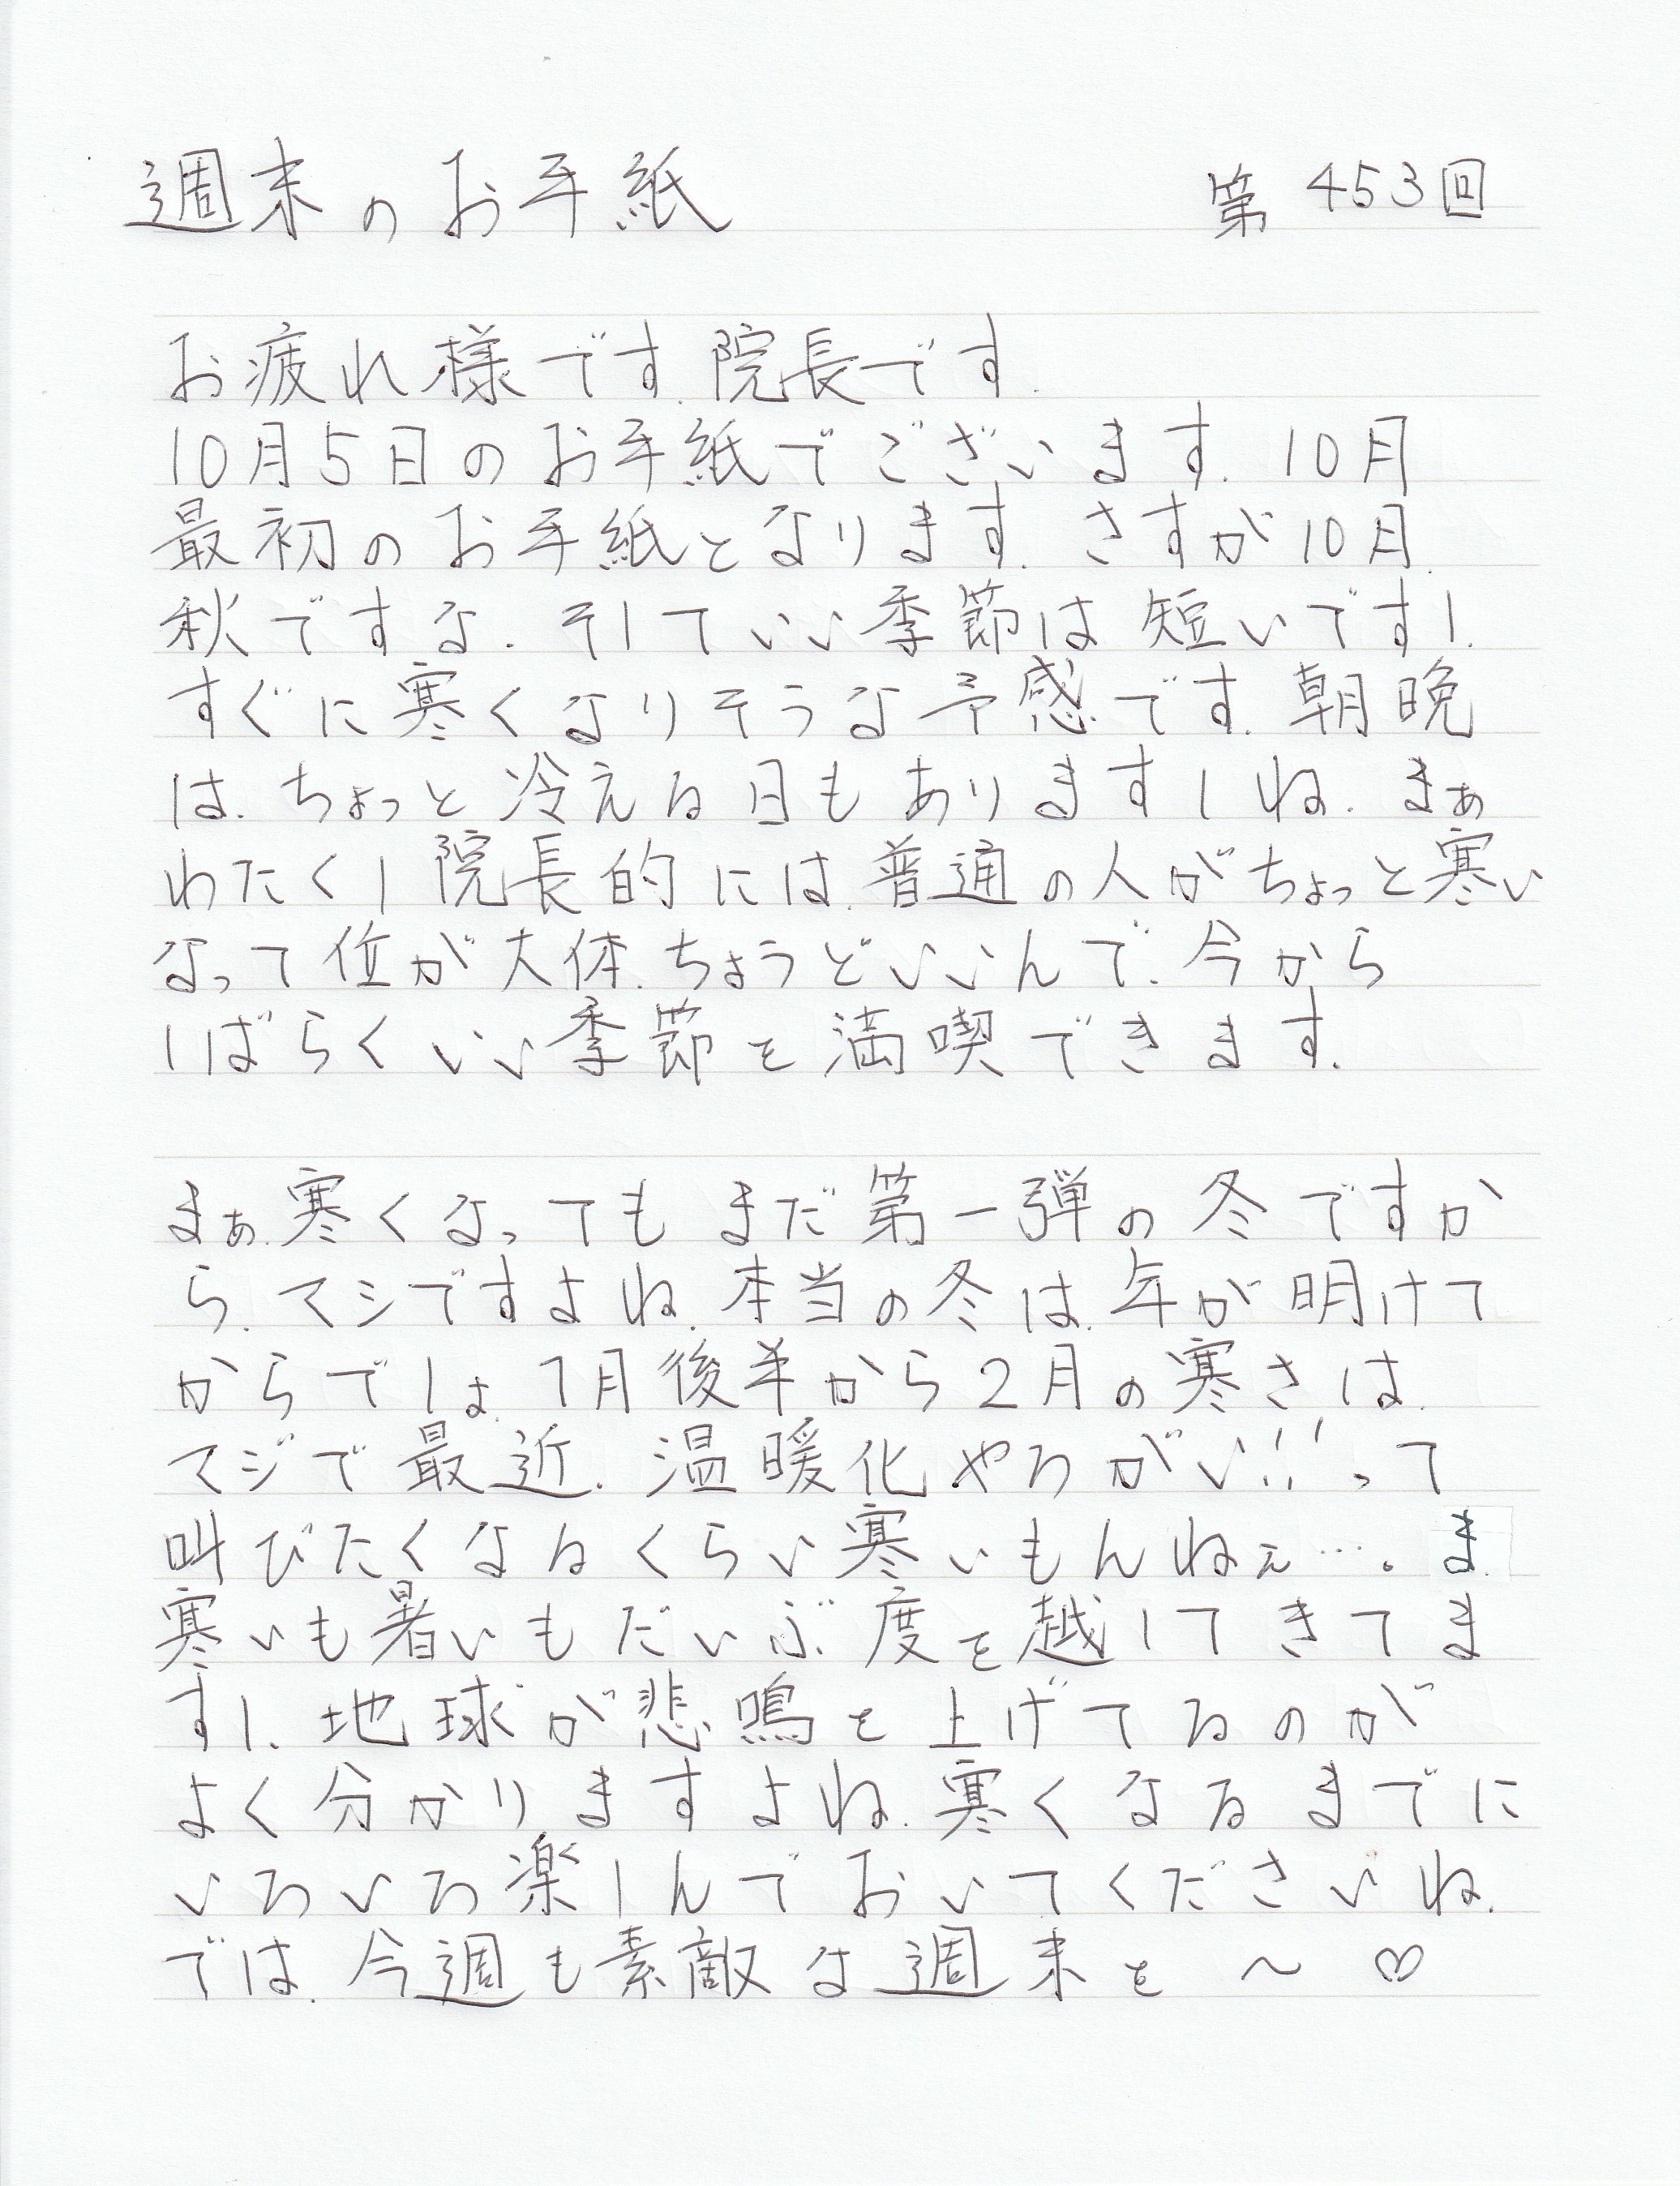 週末のお手紙 第453回
お疲れ様です.院長です.
10月5日のお手紙でございます.10月
最初のお手紙となります.さすが10月.
秋ですな.そしていい季節は短いですし.
すぐに寒くなりそうな予感です.朝晩
は.ちょっと冷える日もありますしね.まぁ
わたくし院長的には.普通の人がちょっと寒い
なって位が大体.ちょうどいいんで.今から
しばらくいい季節を満喫できます.
まぁ.寒くなってもまだ第一弾の冬ですか
ら.マシですよね.本当の冬は.年が明けて
からでしょ.1月後半から2月の寒さは.
マジで最近.温暖化やろがい!!!って
叫びたくなるくらい寒いもんねぇ…。ま.
寒いも暑いもだいぶ度を越してきてま
すし.地球が悲鳴を上げてるのが
よく分かりますよね.寒くなるまでに
いろいろ楽しんでおいてくださいね.
では.今週も素敵な週末を〜♡